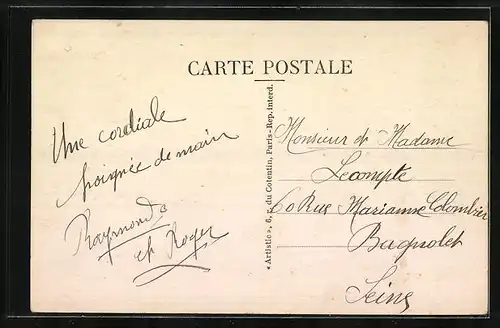 CARTE POSTALE
Une cordiale
poignée de main
Raymonde
et Roger
« Artistic », 6, r. du Cotentin, Paris-Rep. interd.
Monsieur et Madame
Lecompte
60 Rue Marianne Colombier
Bagnolet
Seine